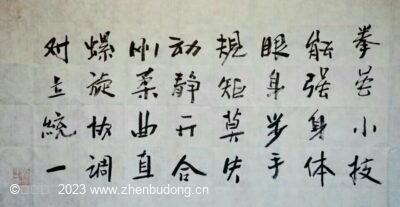 拳虽小技
能强身体
眼身步手
规矩莫失
动静开合
刚柔曲直
螺旋协调
对立統一
2023 www.zhenbudong.cn